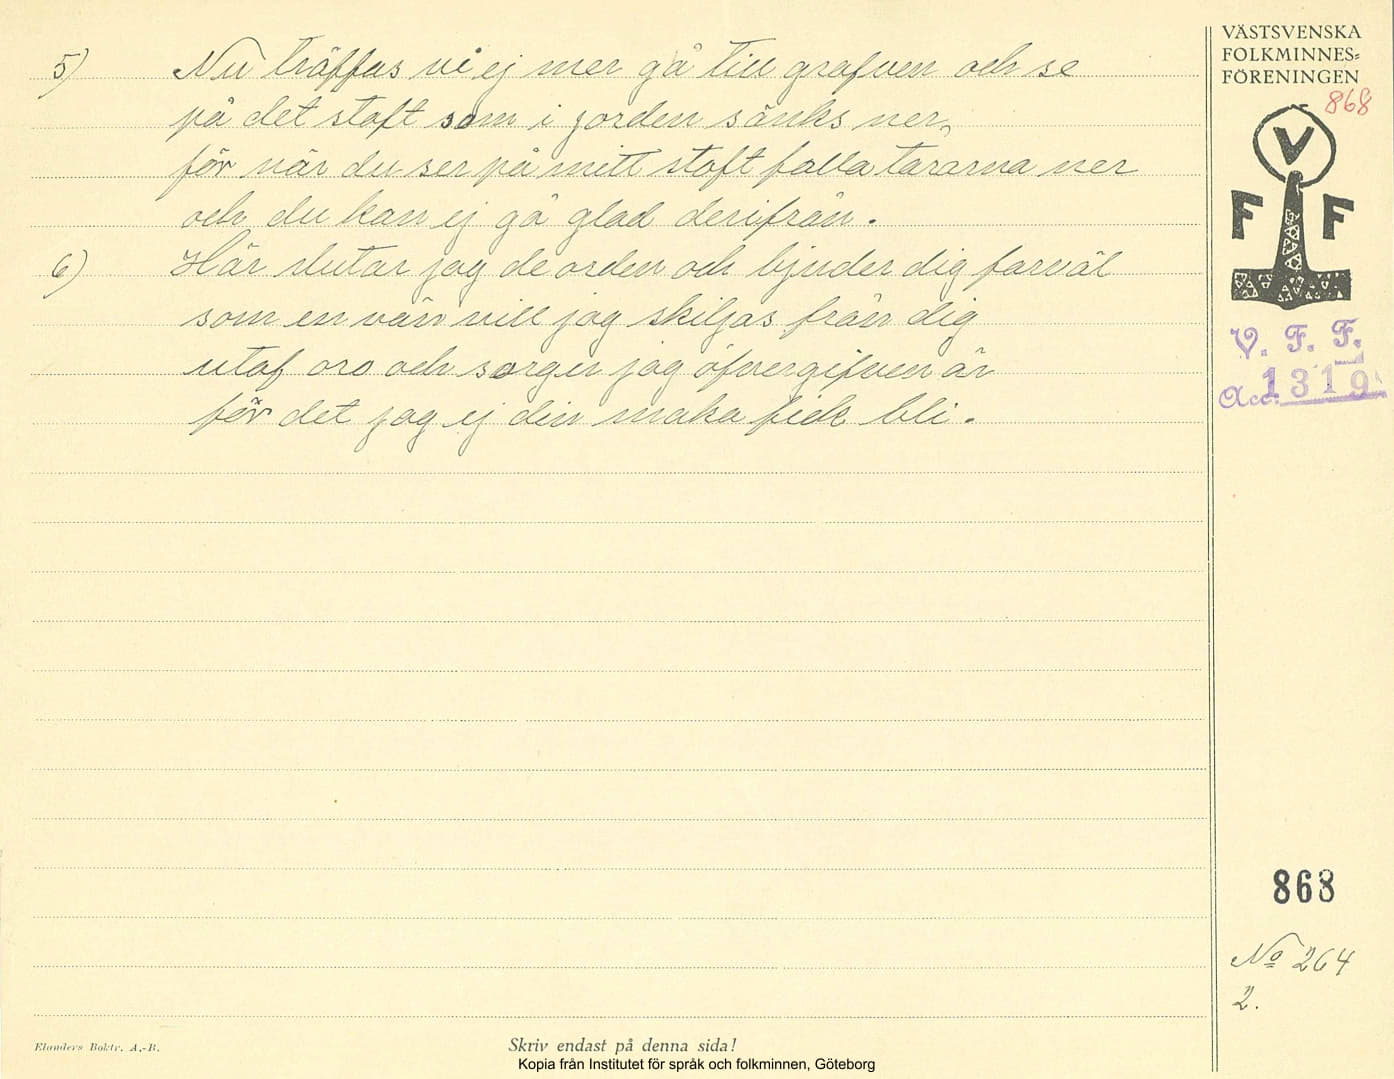 5) Nu träffas vi ej mer gå till grafven och se
på det stoft som i jorden sänks ner,
för när du ser på mitt stoft falla tårarna ner
och du kan ej gå glad derifrån.
6) Här slutar jag de orden och bjuder dig farväl
som en vän vill jag skiljas från dig
utaf oro och sorger jag öfvergifven är
för det jag ej din maka fick bli.
VÄSTSVENSKA
FOLKMINNES-
FÖRENINGEN
868
V
F F
V. F. F.
Acc. 1319
868
No 264
2.
Elanders Boktr. A.-B.
Skriv endast på denna sida!
Kopia från Institutet för språk och folkminnen, Göteborg